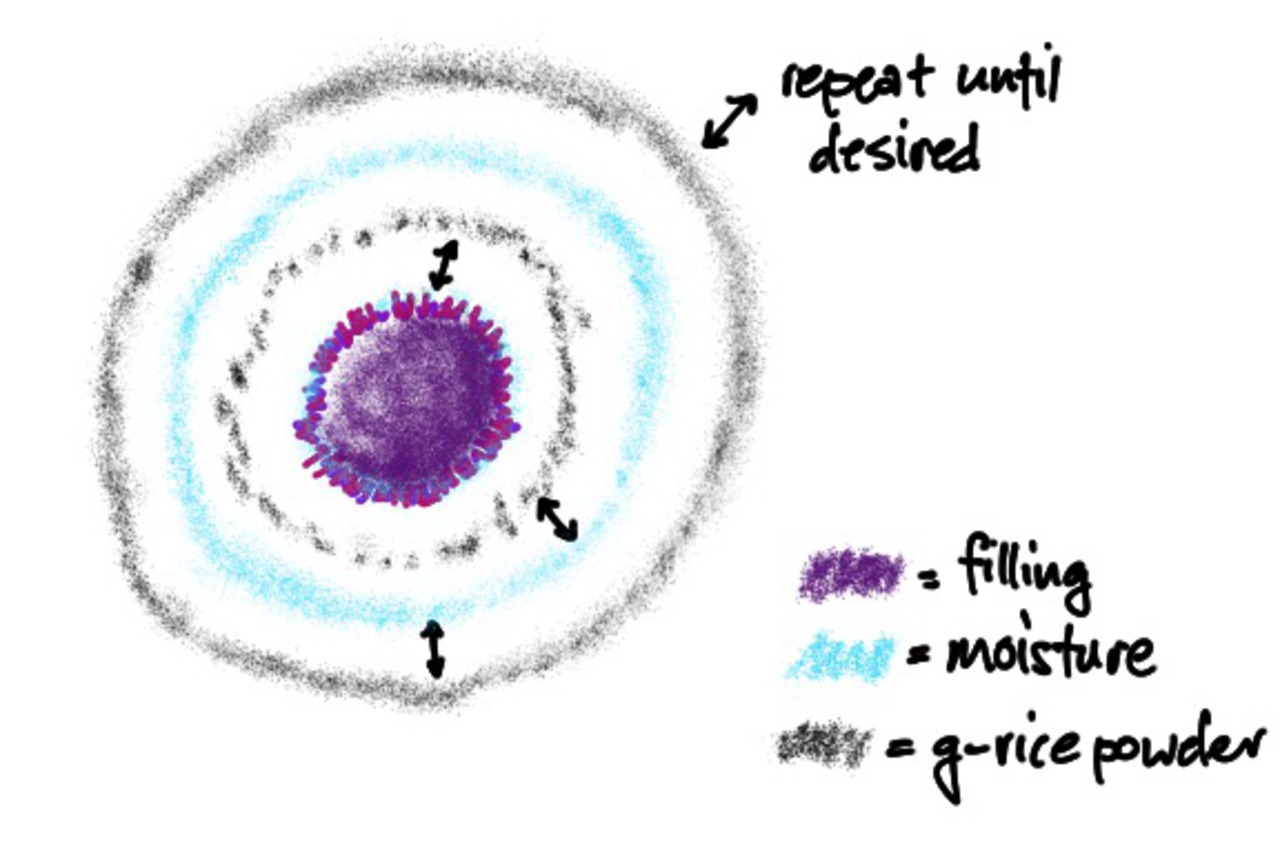 repeat until
desired
= filling
= moisture
= g-rice powder